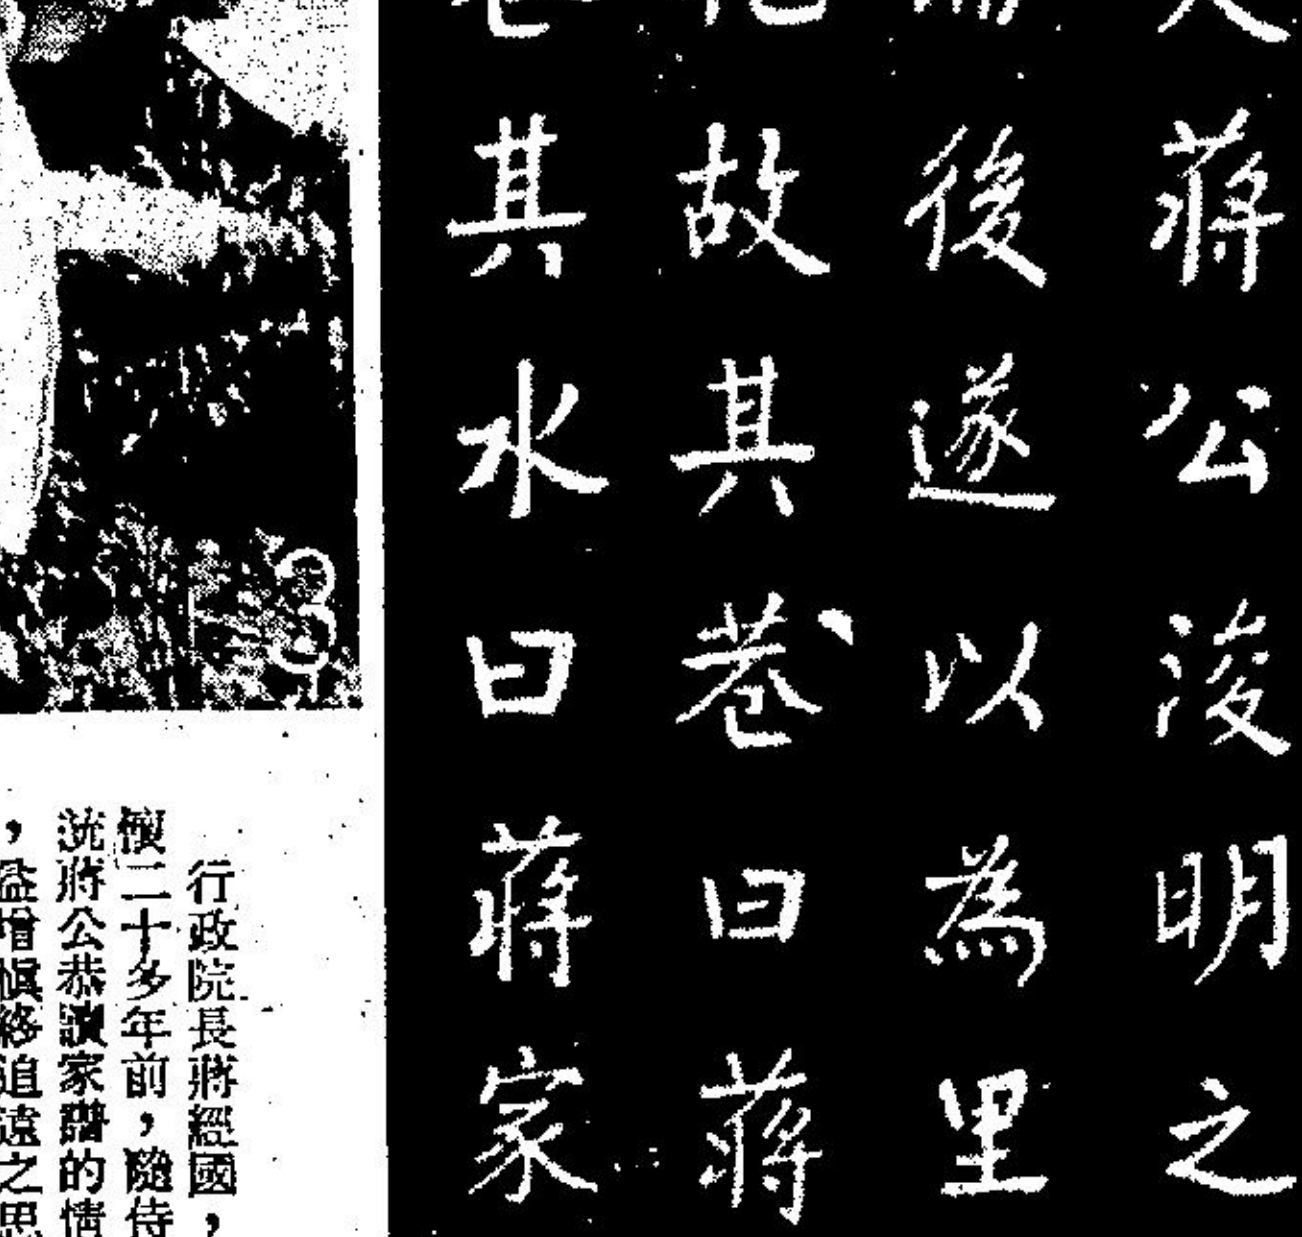 蔣公浚明之
後遂以為里
故其巷曰蔣
其水曰蔣家
行政院長蔣經國，
懷二十多年前，隨侍
流蔣公恭讀家譜的情
，益增慎終追遠之思